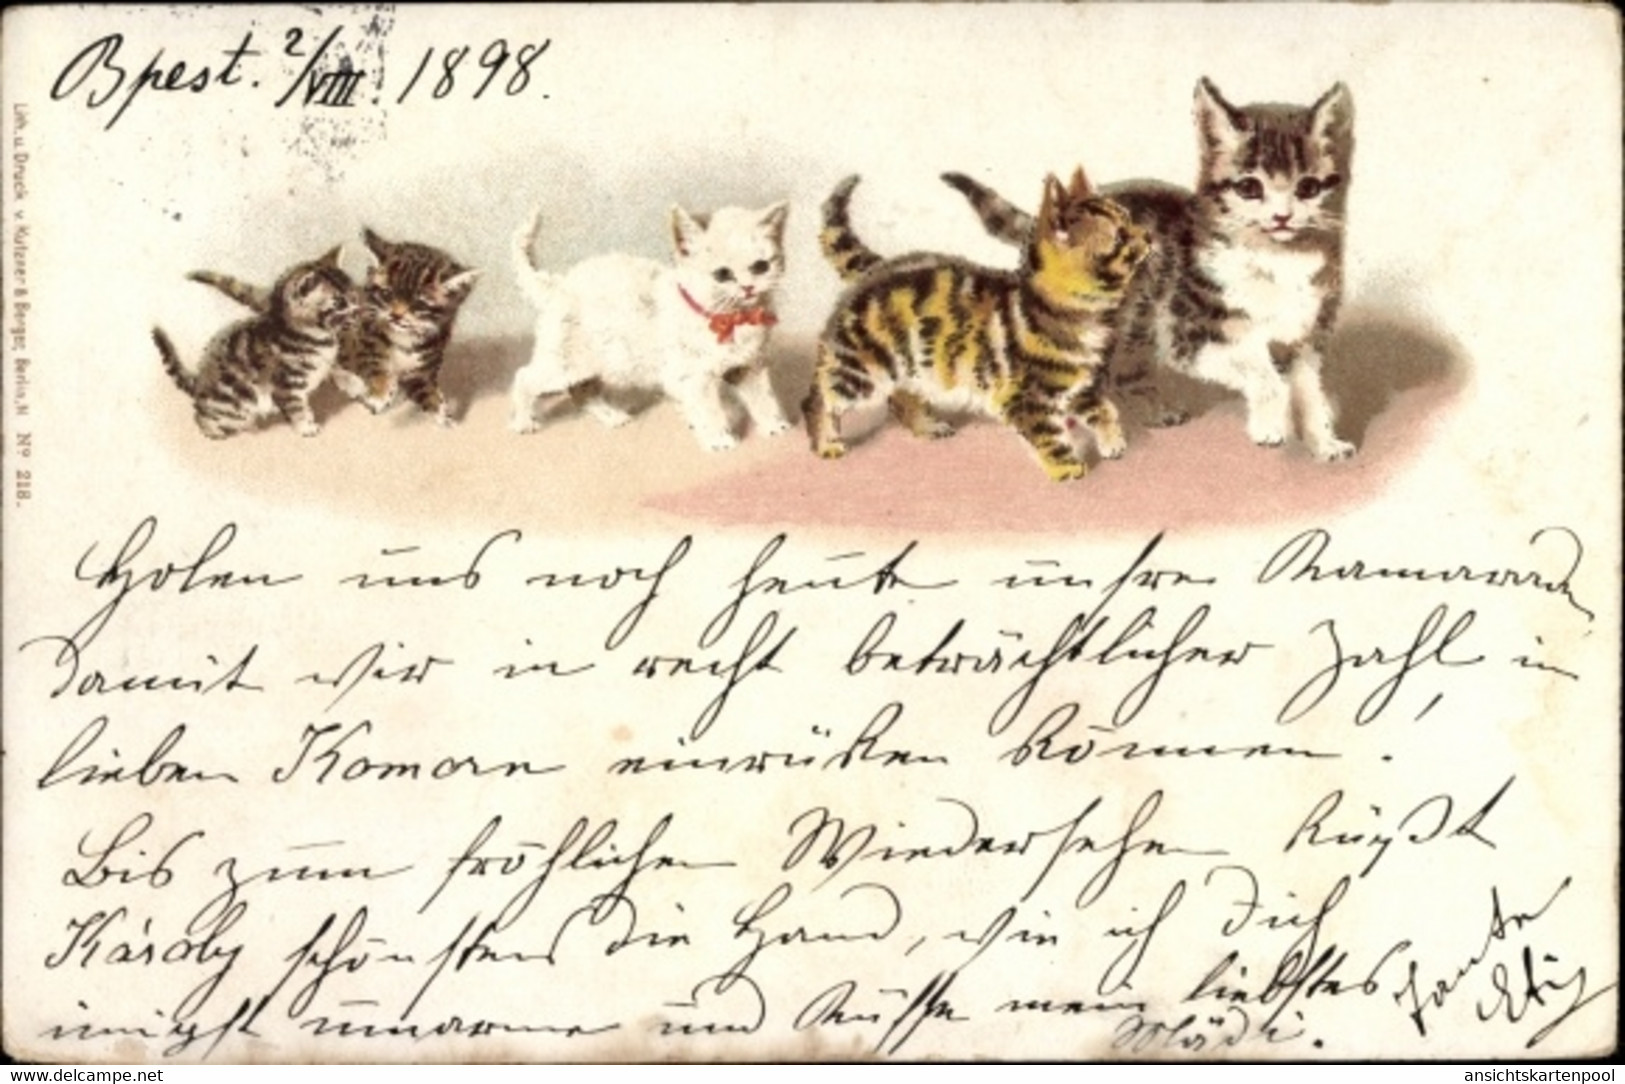 Bpest. 2/VIII. 1898.
Lith. u. Druck v. Kutzner & Berger, Berlin, N Nº 218.
Holen uns noch heute unsre Kamaraden
damit wir in recht beträchtlicher Zahl in
lieben Komorn einrücken können!
Bis zum fröhlichen Wiedersehen küßt
Károly schönstens die Hand, wie ich Dich
innigst umarme und küsse mein liebstes
Mädi.
Tante
delcampe.net
ansichtskartenpool